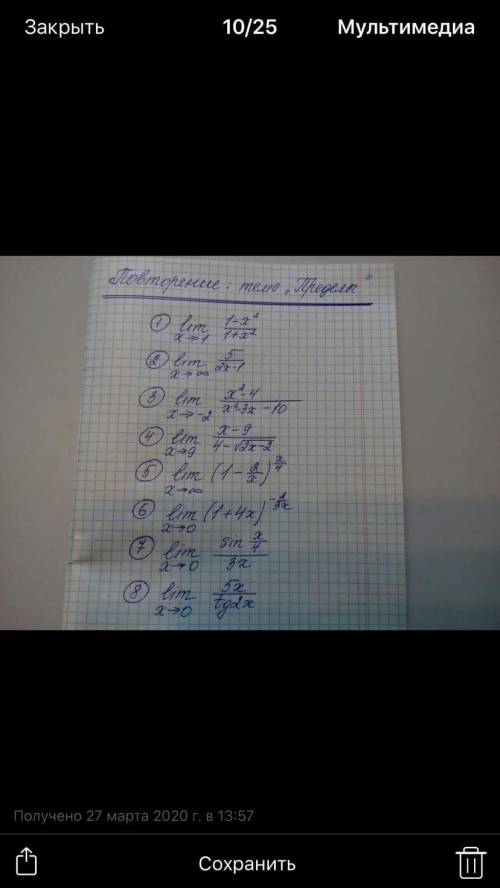 Закрыть 10/25 Мультимедиа
Повторение: тема „Пределы“
① lim x→1 (1-x²)/(1+x²)
② lim x→∞ 5/(2x-1)
③ lim x→-2 (x²-4)/(x²-3x-10)
④ lim x→9 (x-9)/(4-√2x-2)
⑤ lim x→∞ (1-2/x)^(x/4)
⑥ lim x→0 (1+4x)^(-2/3x)
⑦ lim x→0 (sin x/4)/(3x)
⑧ lim x→0 5x/(tg2x)
Получено 27 марта 2020 г. в 13:57
Сохранить